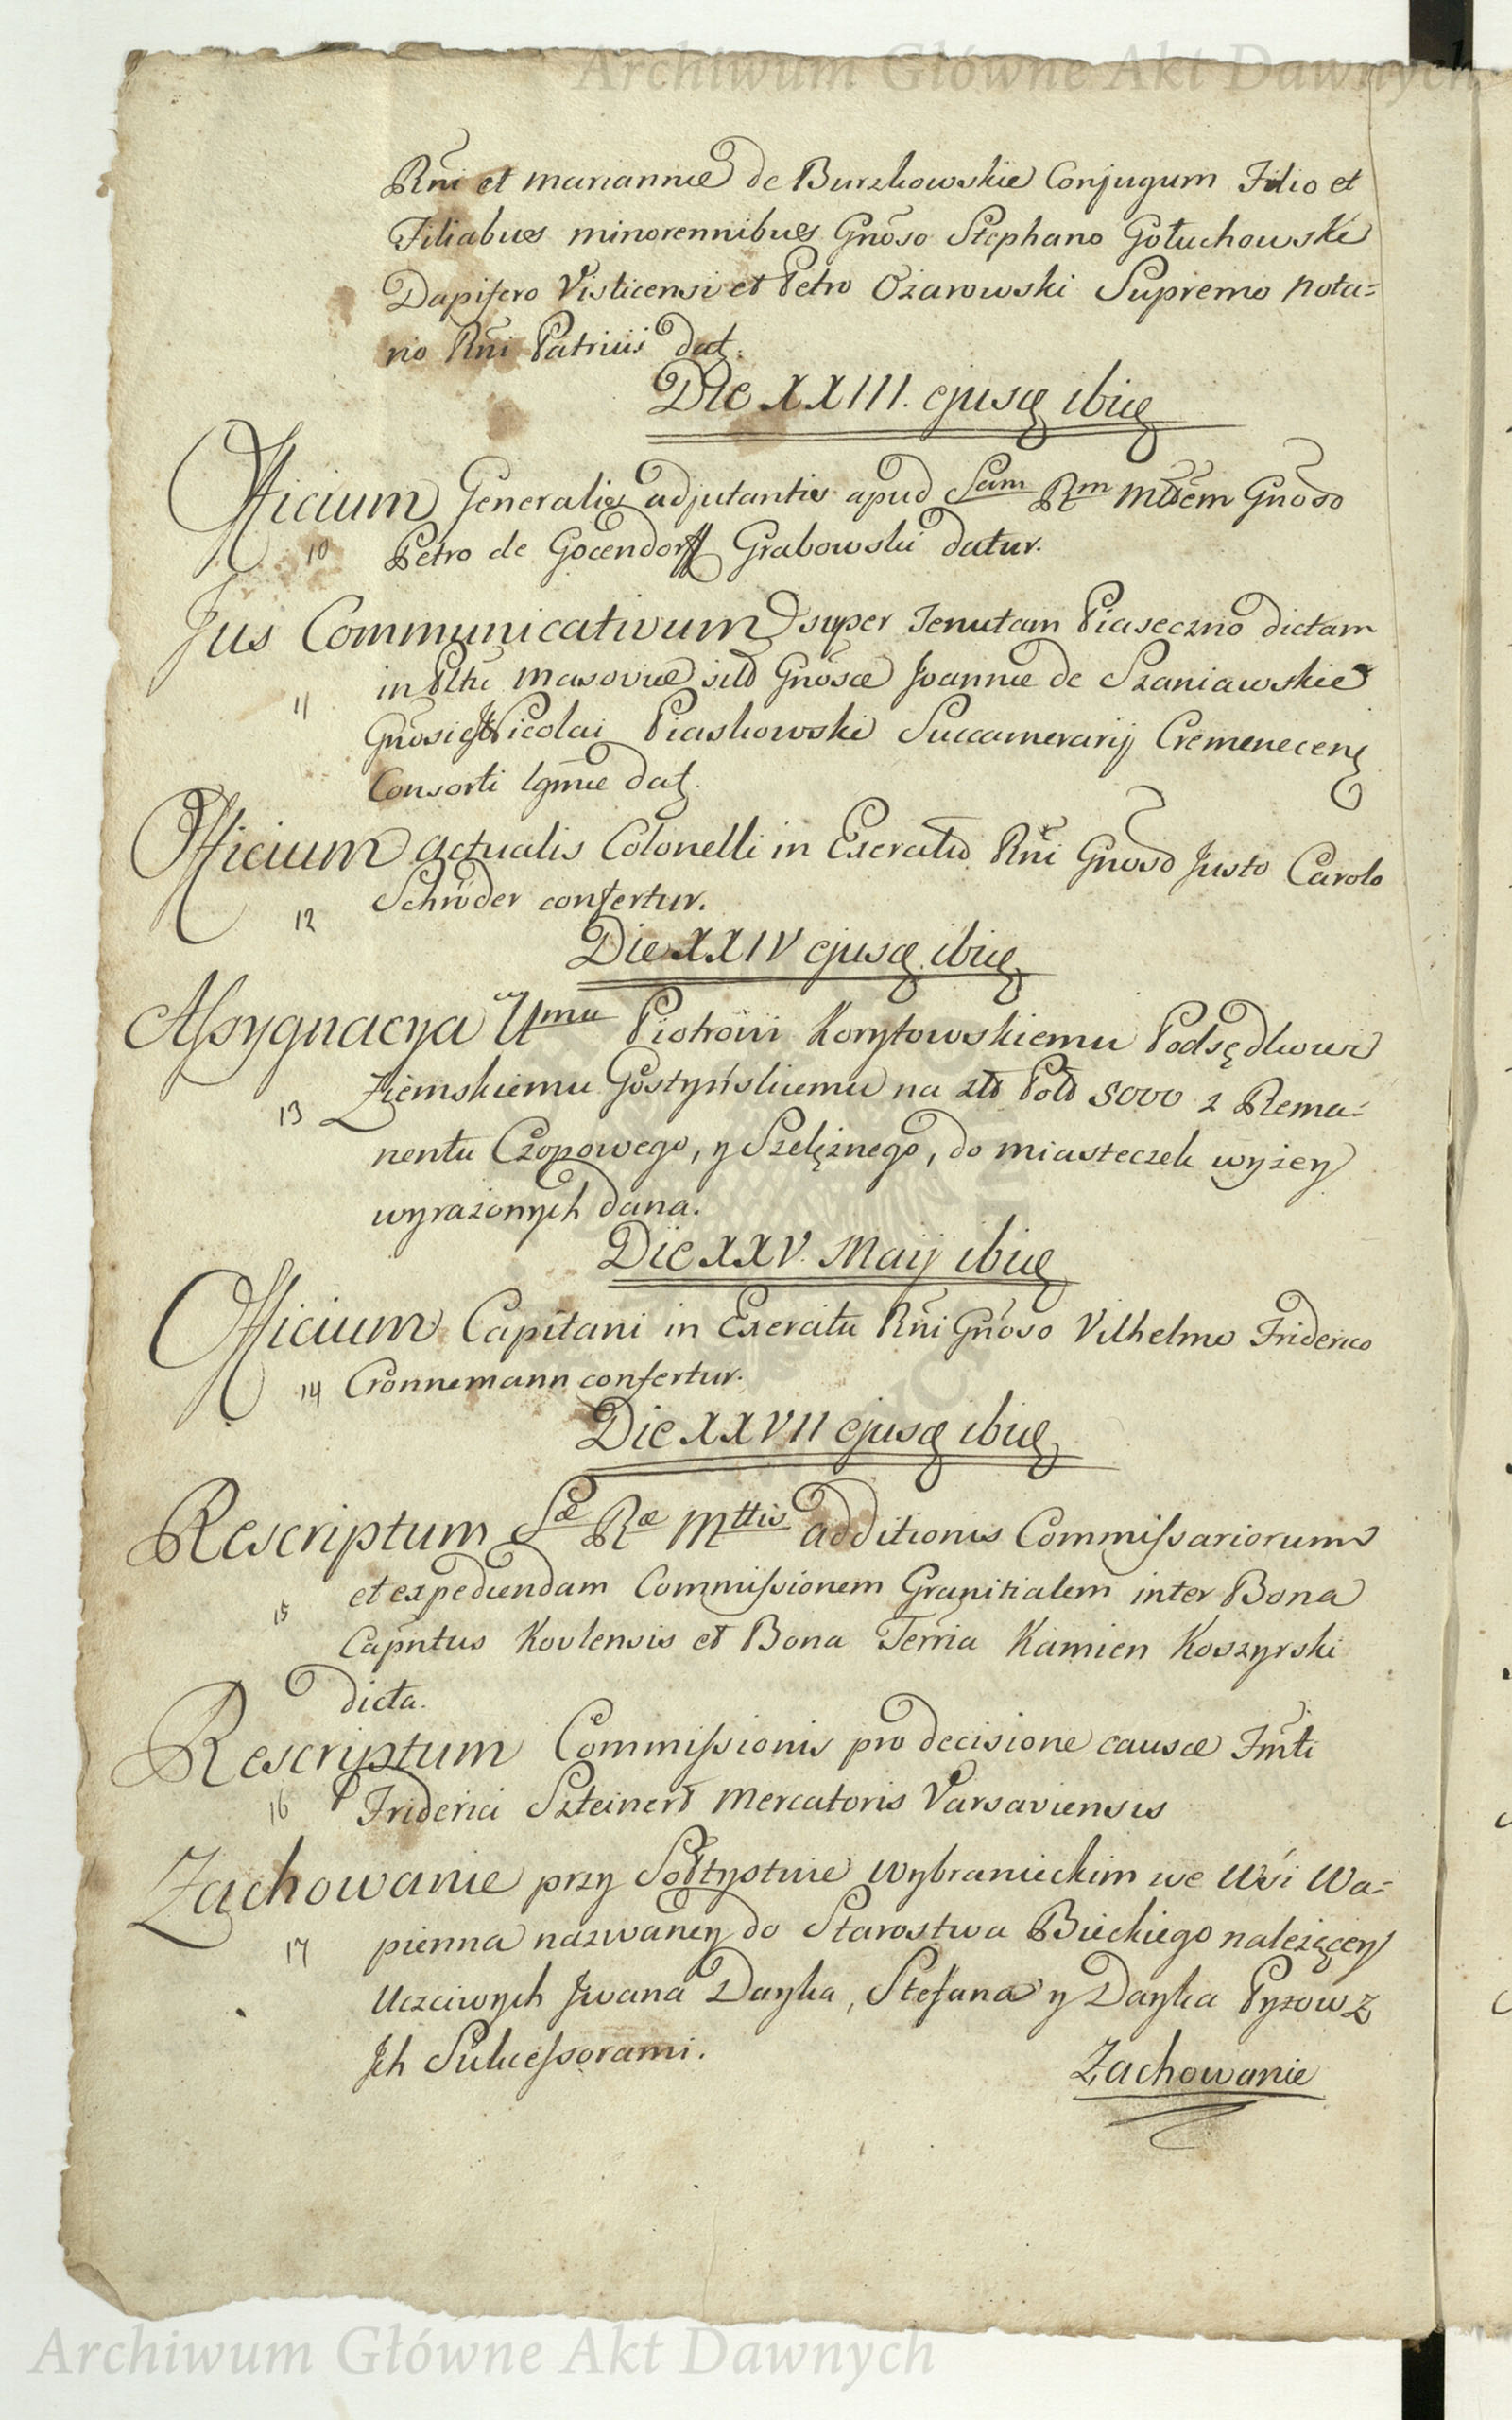 Archiwum Główne Akt Dawnych
Rni et Mariannæ de Burzkowskie Conjugum Filio et
Filiabus minorennibus Gnoso Stephano Gołuchowski
Dapifero Visticensi et Petro Ożarowski Supremo Nota=
rio Rni Patriis dat.
Die XXIII. ejusq ibiq
Officium Generalis adjutantis apud Scam Rm Mttem Gnoso
10 Petro de Gocendorff Grabowski datur.
Jus Communicativum super Tenutam Piaseczno dictam
in Pltu Masoviæ sitā Gnosæ Joannæ de Szaniawskie
11 Gnosi Nicolai Piaskowski Succamerarij Cremenecen
Consorti lgmæ dat.
Officium actualis Colonelli in Exercitu Rni Gnoso Justo Carolo
12 Schröder confertur.
Die XXIV ejusq ibiq
Assygnacya Urmu Piotrowi Korytowskiemu Podsędkowi
13 Ziemskiemu Gostyńskiemu na zlt Pols 8000 z Rema=
nentu Czopowego, y Szelężnego, do miasteczek wyżey
wyrażonych dana.
Die XXV. Maij ibiq
Officium Capitani in Exercitu Rni Gnoso Vilhelmo Friderico
14 Cronnemann confertur.
Die XXVII ejusq ibiq
Rescriptum Sæ Ræ Mttis additionis Commissariorum
et expediendam Commissionem Granitialem inter Bona
15
Capntus Kovlensis et Bona Terria Kamien Koszyrski
dicta.
Rescriptum Commissionis pro decisione causæ Fmti
16 Friderici Szteinert Mercatoris Varsaviensis
Zachowanie przy Sołtystwie wybranieckim we Wsi Wa=
17 pienna nazwaney do Starostwa Bieckiego należącey
Uczciwych Jwana Dayka, Stefana y Dayka Pyzow z
Jch Sukcessorami.
Zachowanie
Archiwum Główne Akt Dawnych